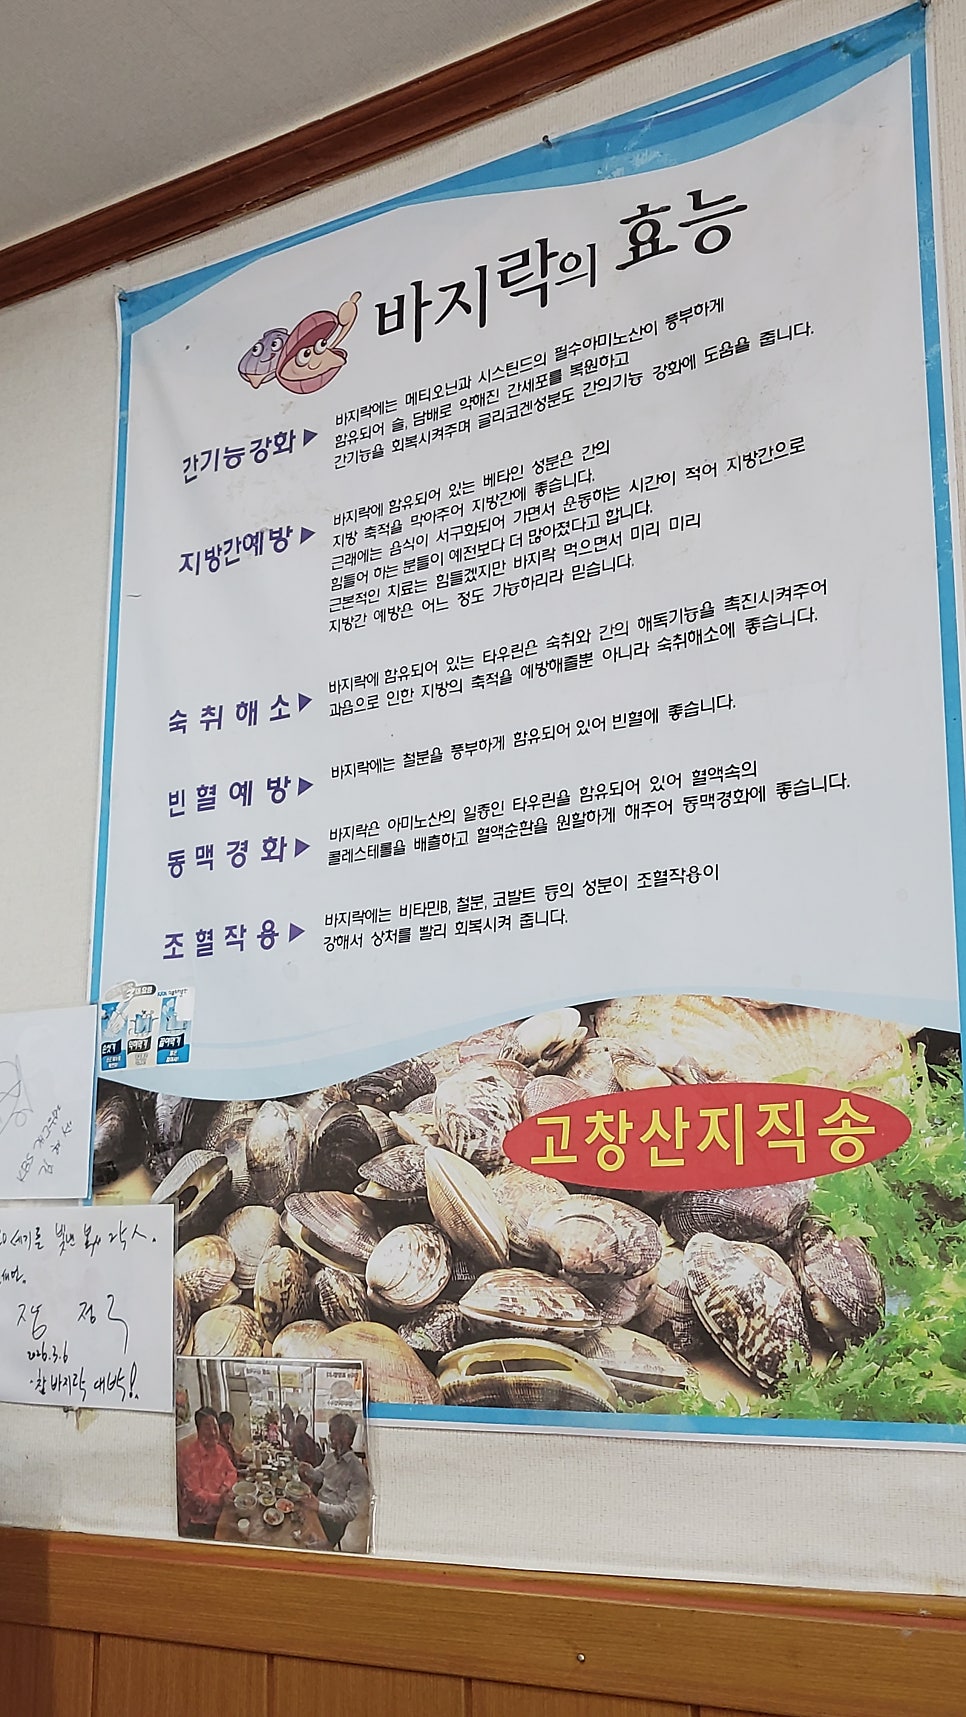 바지락의 효능
간기능강화▶
바지락에는 메티오닌과 시스틴드의 필수아미노산이 풍부하게
함유되어 술, 담배로 약해진 간세포를 복원하고
간기능을 회복시켜주며 글리코겐성분도 간의기능 강화에 도움을 줍니다.
지방간예방▶
바지락에 함유되어 있는 베타인 성분은 간의
지방 축적을 막아주어 지방간에 좋습니다.
근래에는 음식이 서구화되어 가면서 운동하는 시간이 적어 지방간으로
힘들어 하는 분들이 예전보다 더 많아졌다고 합니다.
근본적인 치료는 힘들겠지만 바지락 먹으면서 미리 미리
지방간 예방은 어느 정도 가능하리라 믿습니다.
숙취해소▶
바지락에 함유되어 있는 타우린은 숙취와 간의 해독기능을 촉진시켜주어
과음으로 인한 지방의 축적을 예방해줄뿐 아니라 숙취해소에 좋습니다.
빈혈예방▶
바지락에는 철분을 풍부하게 함유되어 있어 빈혈에 좋습니다.
동맥경화▶
바지락은 아미노산의 일종인 타우린을 함유되어 있어 혈액속의
콜레스테롤을 배출하고 혈액순환을 원할하게 해주어 동맥경화에 좋습니다.
조혈작용▶
바지락에는 비타민B, 철분, 코발트 등의 성분이 조혈작용이
강해서 상처를 빨리 회복시켜 줍니다.
손씻기
익혀먹기
끓여먹기
고창산지직송
2026.3.6
바지락 대박!